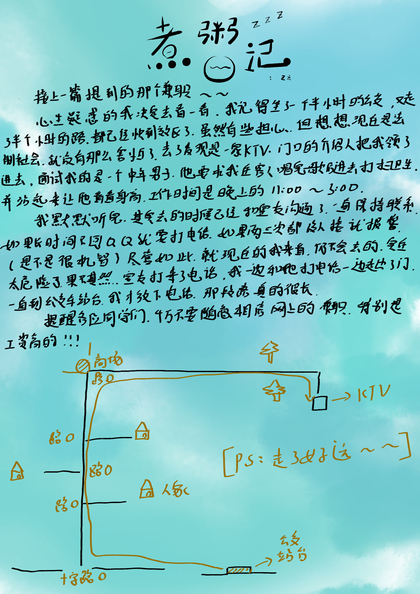 煮粥日记
zzz
接上一篇提到的那个兼职～～
心生疑惑的我决定去看一看，我记得坐了一个半小时的公交，又走
了半个小时的路，都已经快到郊区了。虽然有些担心，但想想现在是法
制社会，就没有那么害怕了。去了发现是一家KTV，门口的介绍人把我领了
进去，面试我的是一个中年男子，他要求我在客人唱完歌后进去打扫卫生，
并站起来让他看看身高，工作时间是晚上的11:00～5:00。
我默默听完，其实去的时候已经和室友沟通了，一直保持联系
如果长时间不回QQ就要打电话，如果两三次都没接就报警
（是不是很机智）尽管如此，就现在的我来看，何不会去的，实在
太危险了果然，室友打来了电话，我一边和他打电话一边走出了门
一直到公交车站台，我才放下电话，那段路真的很长
提醒各位同学们，千万不要随意相信网上的兼职，特别是
工资高的!!!
商场
路口
KTV
路口
路口
[PS:走了好远～～]
路口
人家
公交
站台
十字路口